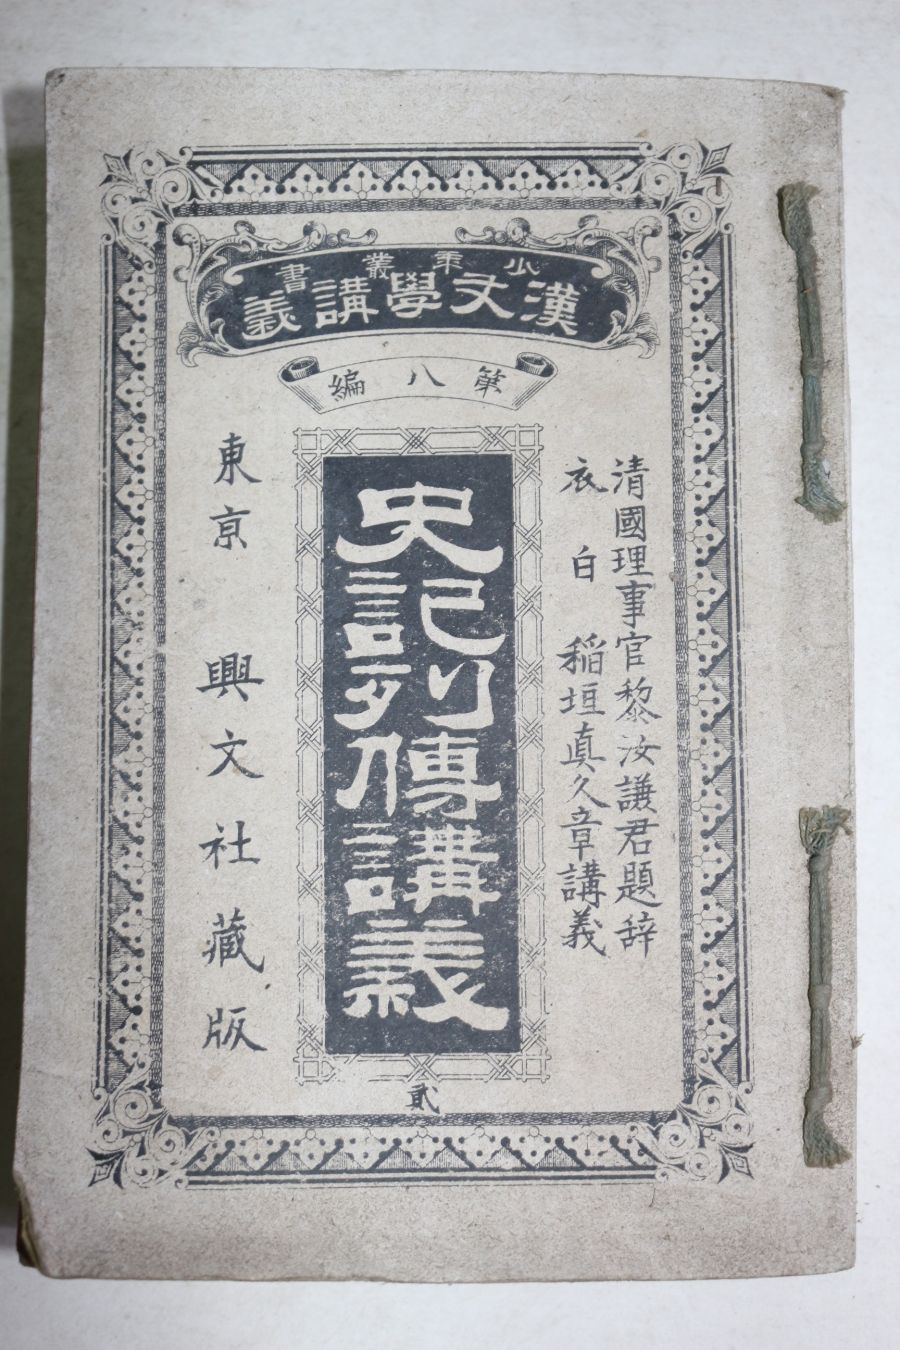 少年叢書
漢文學講義
第八編
清國理事官黎汝謙君題辞
衣白 稲垣真久章講義
史記列傳講義
貳
東京 興文社藏版